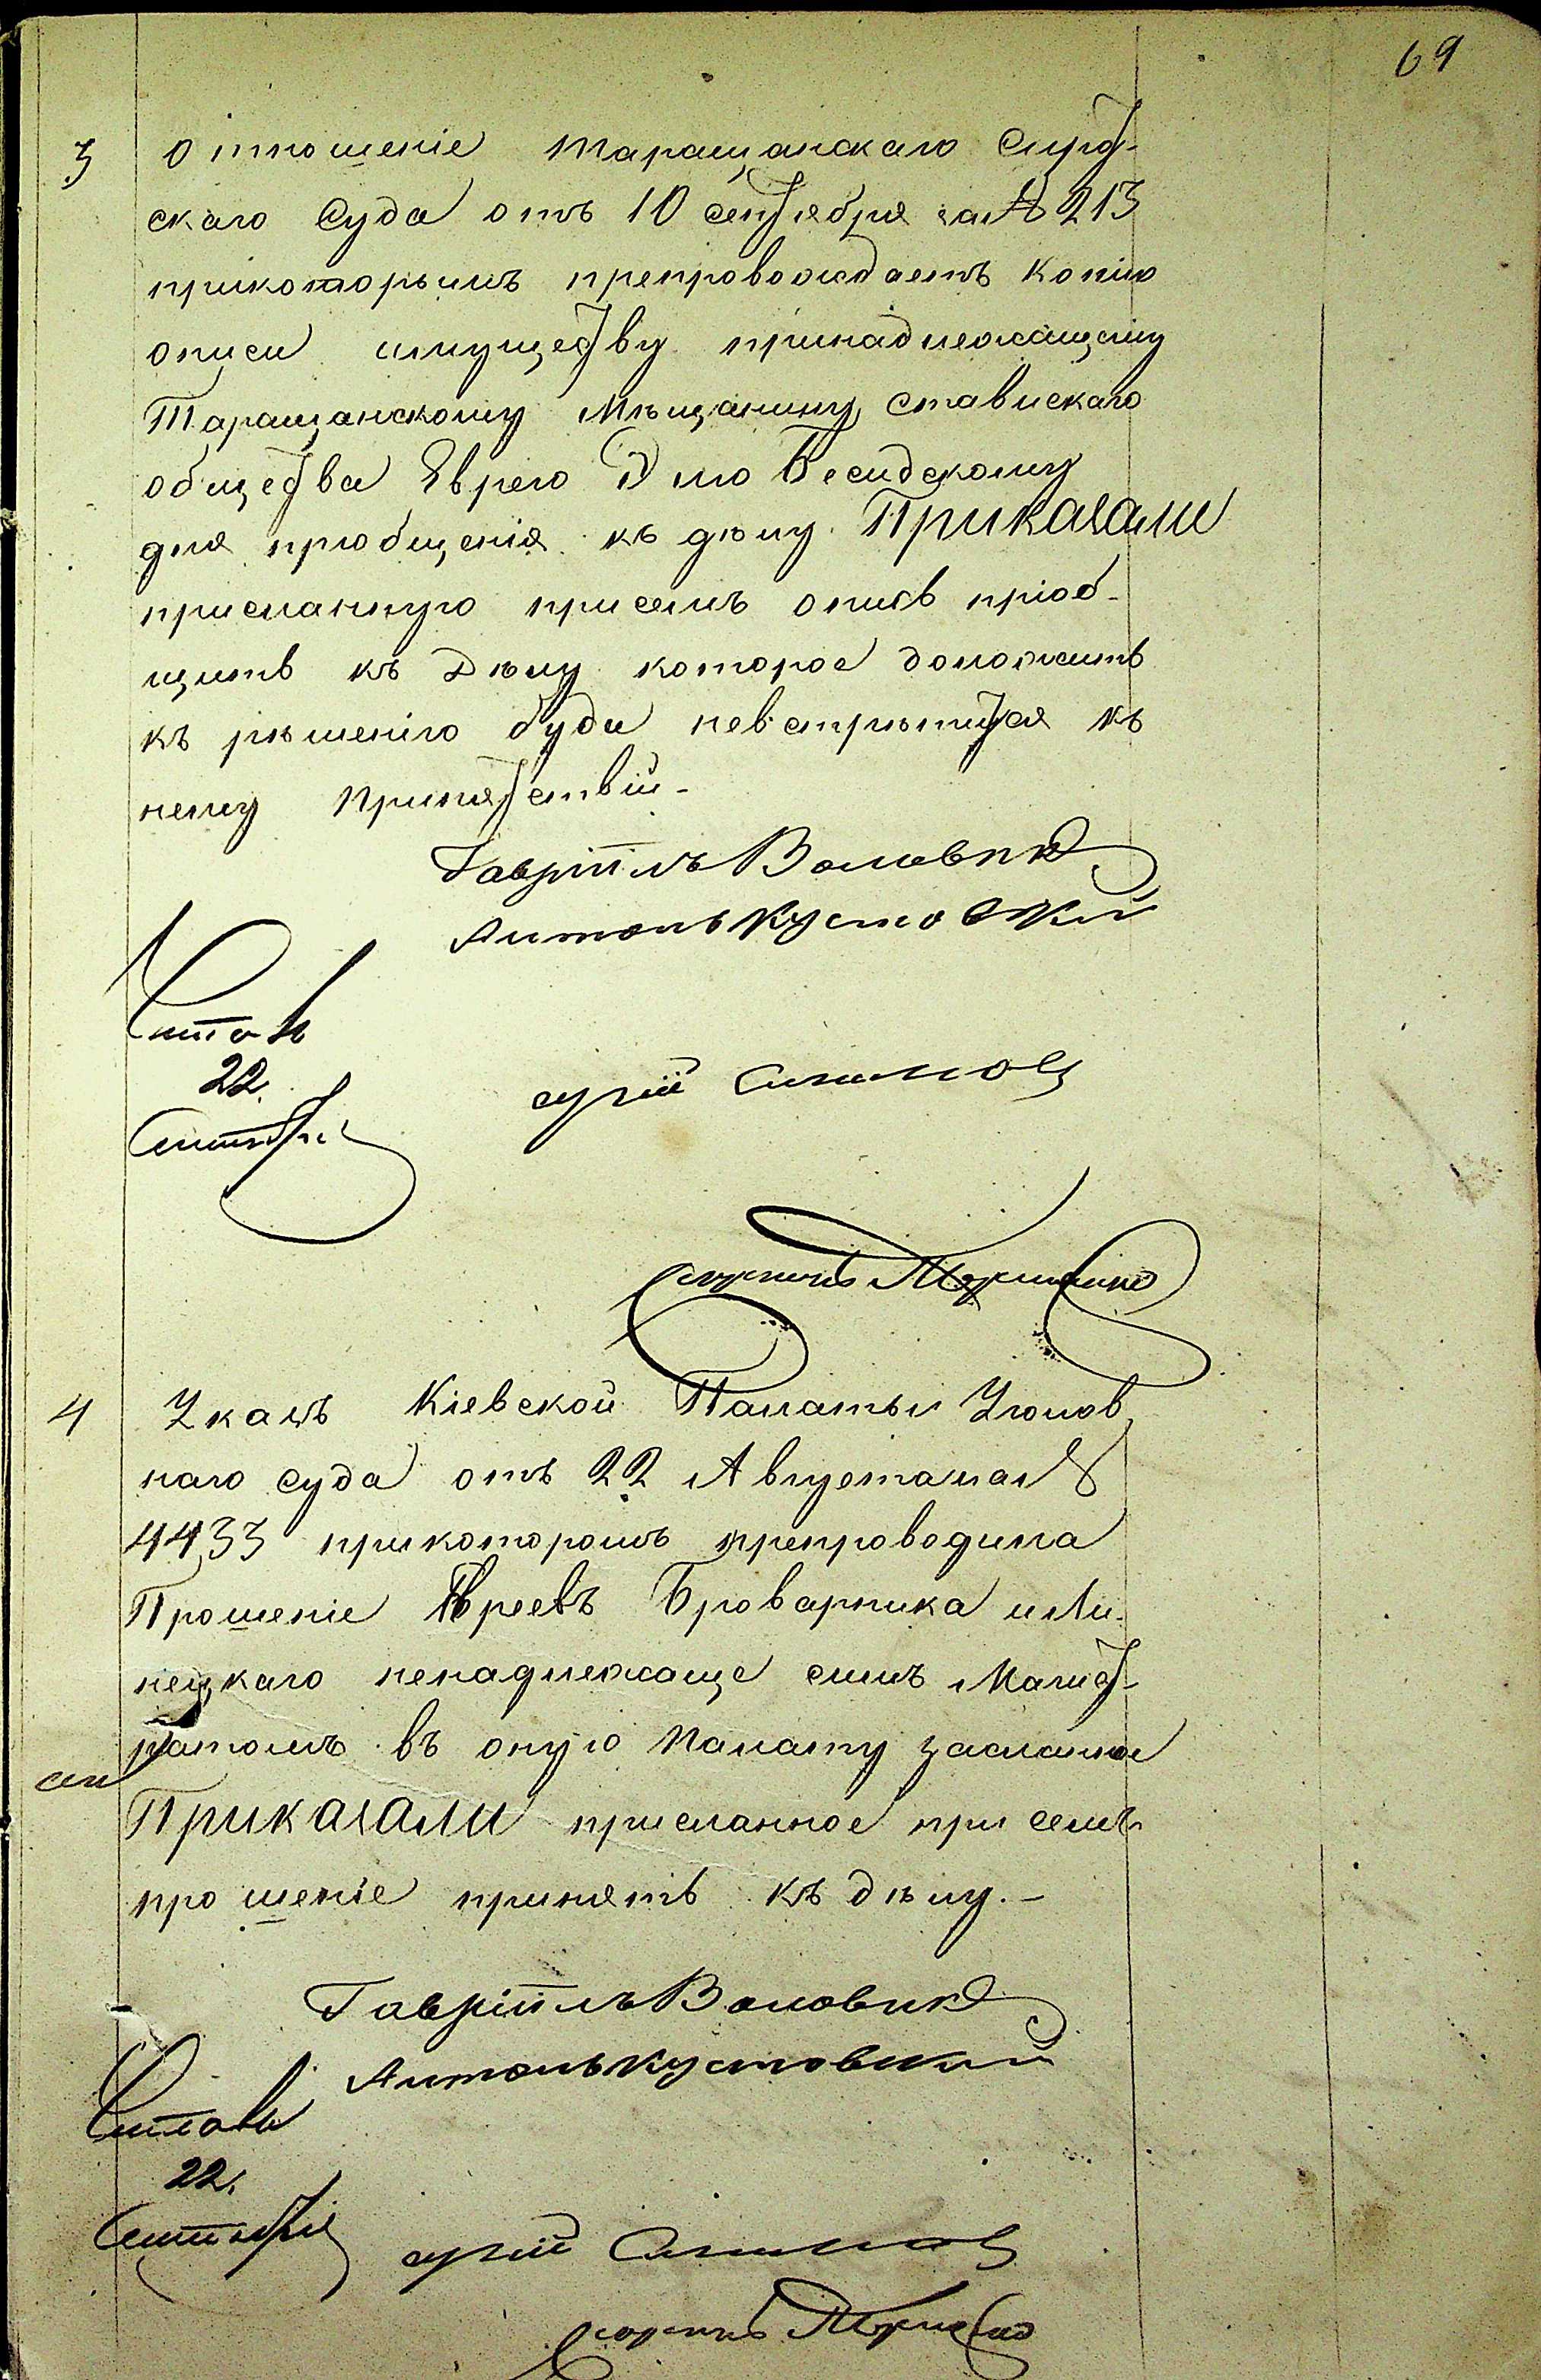 69
3 Отношеніе Таращанскаго Сирот-
скаго Суда отъ 10 сентября за № 213
прикоторымъ препровождаетъ копію
описи имуществу принадлежащему
Таращанскому Мѣщанину, ставискаго
общества Еврею Бесидскому
для пріобщенія къ дѣлу. Приказали
присланную присемъ опись пріоб-
щить къ Дѣлу которое доложить
къ рѣшенію буде невстрѣтится къ
нему Припятствій-
Гавріилъ Воловик
Антонъ Кустовский
Читалъ
22.
Сентября
4 Указъ Кіевской Палаты Уголов
наго суда отъ 22 Августа за №
4433 прикоторомъ препроводила
Прошеніе Евреевъ Броварника и Ли-
нецкаго ненадлежаще симъ Магист-
ратомъ въ оную Палату засланное
Приказали присланное при семъ
прошеніе принять къ дѣлу.-
Гавріилъ Воловик
Антонъ Кустовский
Читалъ
22.
Сентября